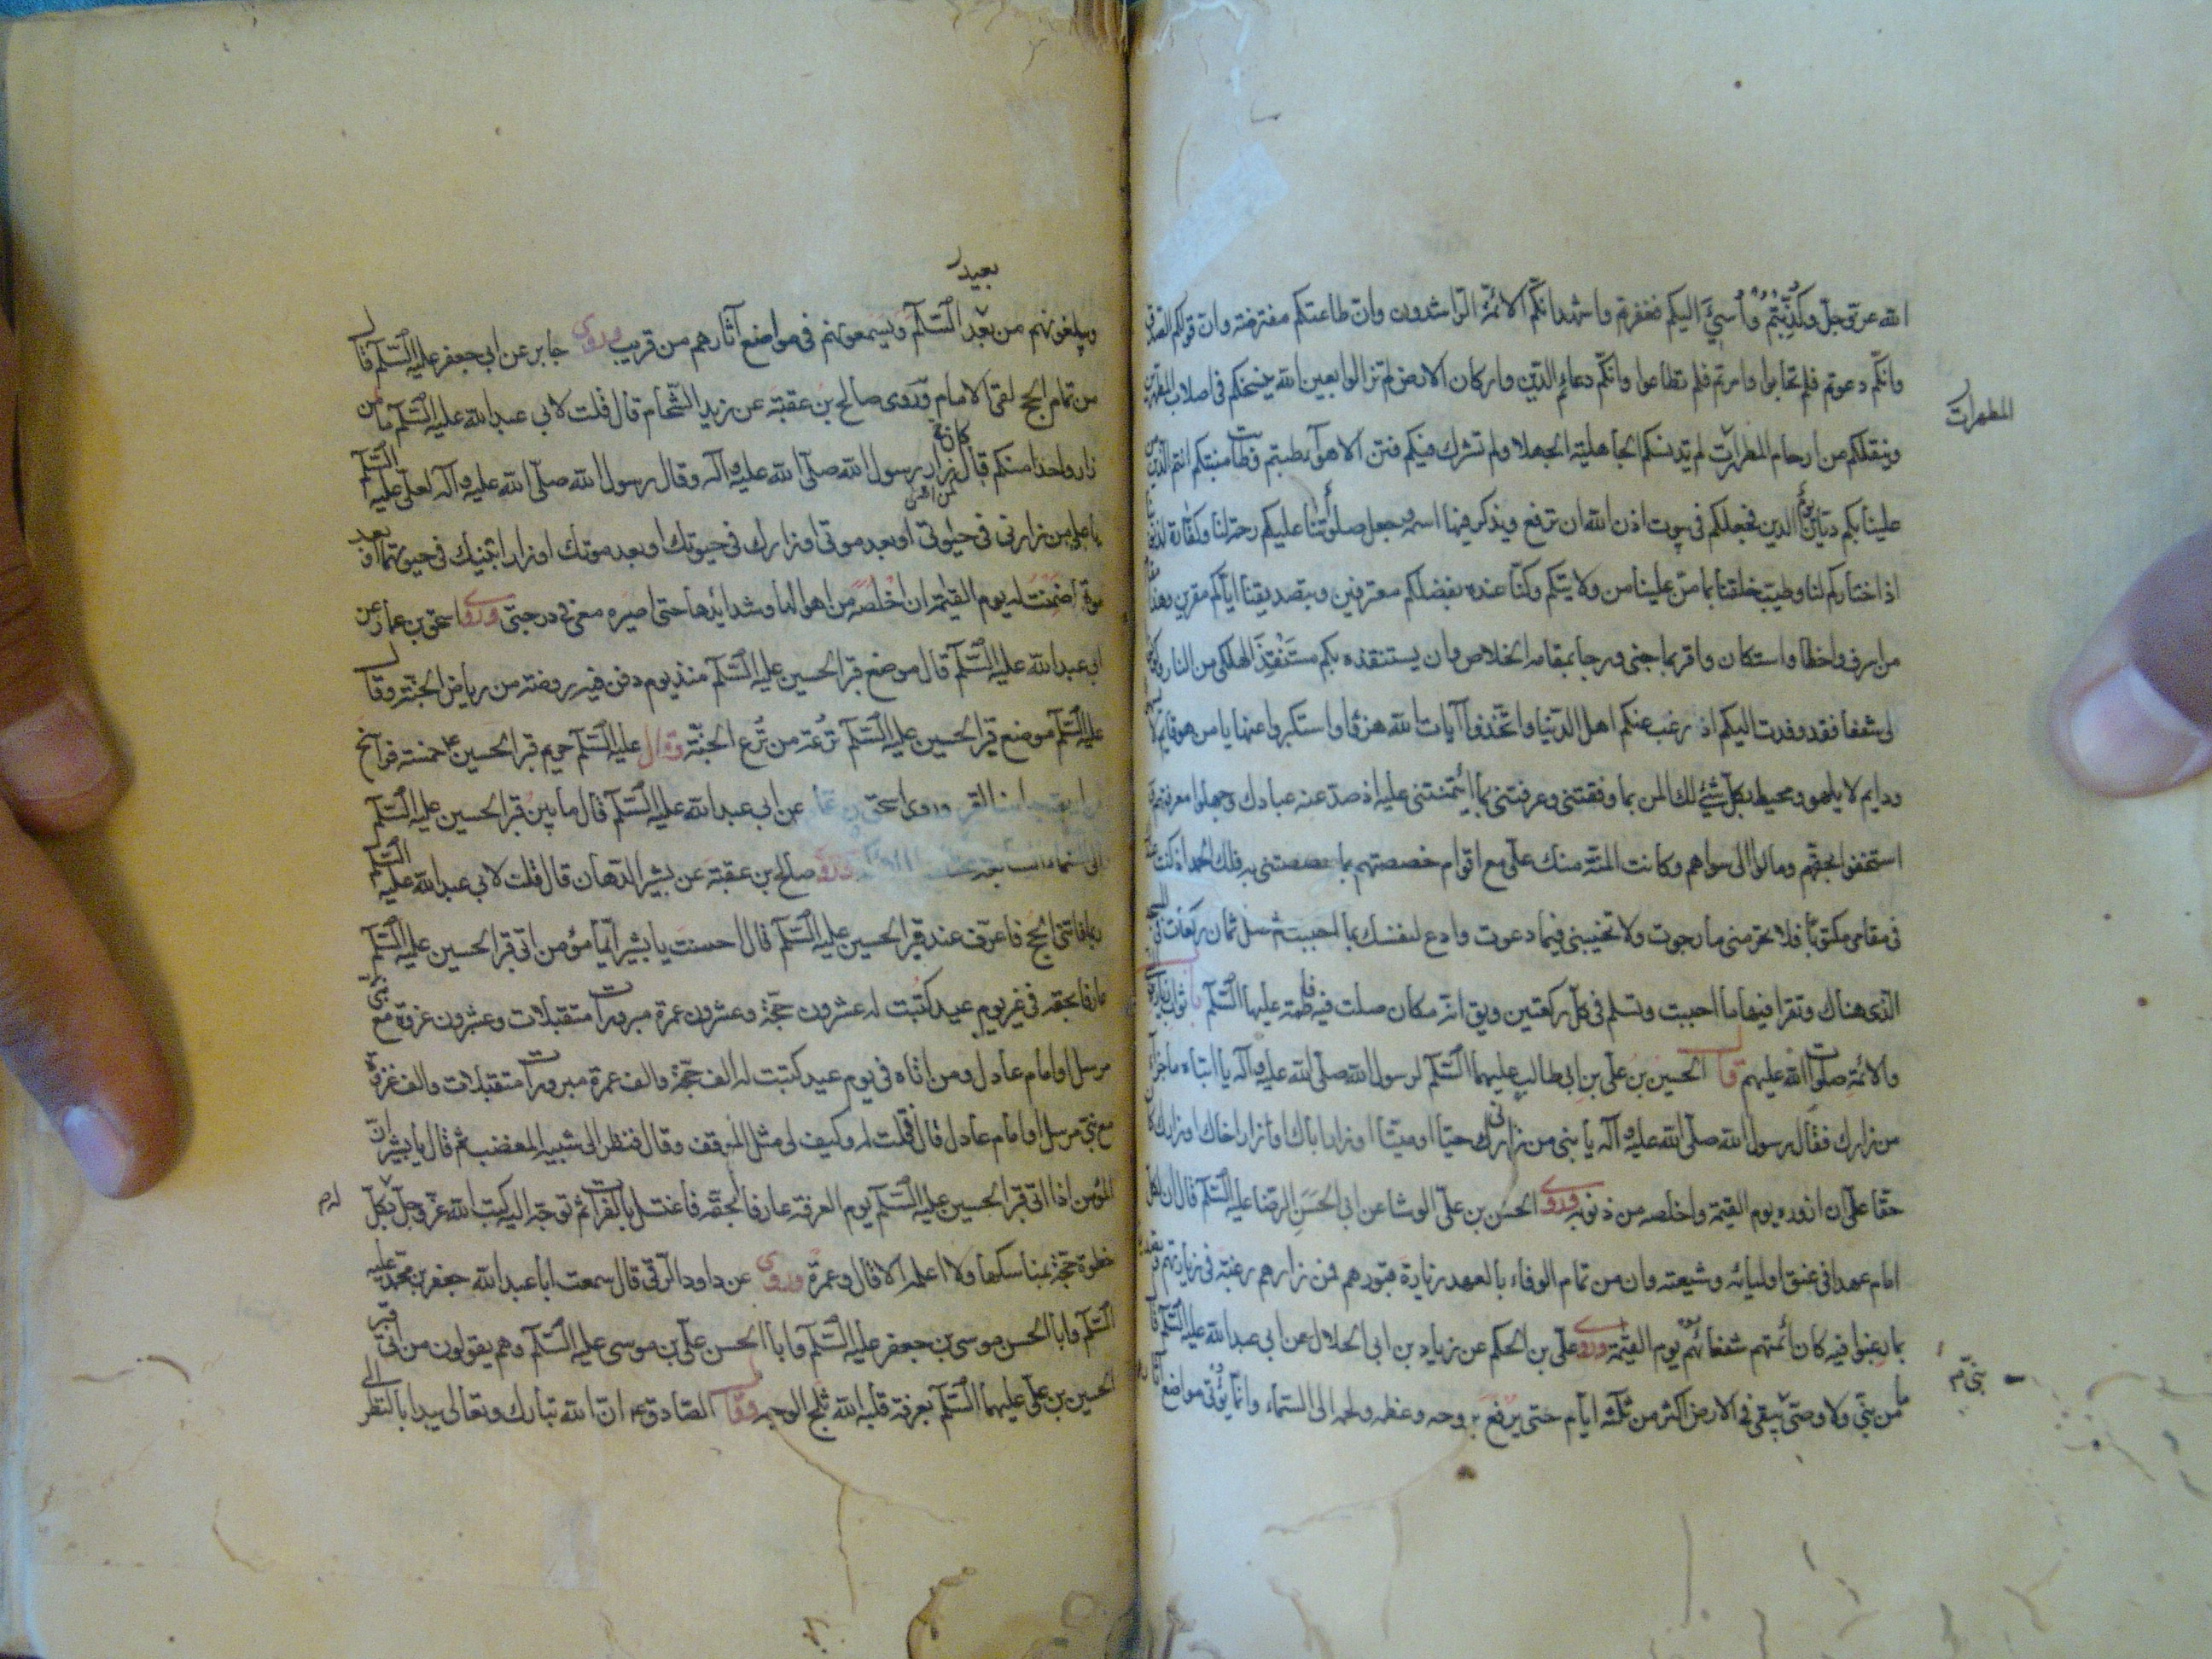 الله عزّوجلّ وكُذِّبتم واُسيءَ اليكم فغفرتم واشهد انّكم الائمّة الرّاشدون وانّ طاعتكم مفترضة وانّ قولكم الصدق
وانّكم دعوتم فلم تجابوا وامرتم فلم تطاعوا وانّكم دعائم الدّين واركان الارض لم تزالوا بعين الله ينسخكم في اصلاب المطهرين
المطهرات
وينقلكم من ارحام المطهرات لم يدنسكم الجاهلية الجهلاء ولم تشرك فيكم فتن الاهواء طبتم وطابت منبتكم انتم الذين
علينا بكم ديّان الدين فجعلكم في بيوت اذن الله ان ترفع ويذكر فيها اسمه وجعل صلوتنا عليكم رحمة لنا وكفّارة لذنوبنا
اذ اختاركم لنا وطيب خلقنا بما منّ علينا من ولايتكم وكنّا عنده بفضلكم معترفين وبتصديقنا ايّاكم مقرين وهذا مقام
من اسرف واخطا واستكان واقر بما جنى ورجا بمقامه الخلاص وان يستنقذه بكم مستنقذ الهلكى من النار فكونوا
لي شفعا فقد وفدت اليكم اذ رغب عنكم اهل الدّنيا واتّخذوا آيات الله هزؤا واستكبروا عنها يا من هو قايم لا
ودايم لا يلهو ومحيط بكلّ شيء لك المن بما وفقتني وعرفتني بما ائتمنتني عليه اذ صدّ عنه عبادك وجهلوا معرفتهم
استخفوا بحقهم ومالوا الى سواهم وكانت المنّة منك علىّ مع اقوام خصصتهم بما خصصتني به فلك الحمد اذ كنت عندك
في مقامي مكتوبا فلا تحرمني ما رجوت ولا تخيبني فيما دعوت وادع لنفسك بما احببت ثم تصل ثمان ركعات في المسجد
الّذي هناك وتقرا فيها ما احببت وتسلم في كلّ ركعتين ويق انّه مكان صلت فيه فاطمة عليها السّلم باب ثواب زيارة
والائمّة صلوات الله عليهم قال الحسين بن علي بن ابي طالب عليهما السّلم لرسول الله صلّى الله عليه وآله يا ابتاه ما جزاء
من زارك فقال رسول الله صلّى الله عليه وآله يا بني من زارني حيّا او ميّتا او زار اباك او زار اخاك او زارك كان
حقا علىّ ان ازوره يوم القيمة واخلصه من ذنوبه وروى الحسن بن علىّ الوشا عن ابي الحسن الرضا عليه السّلم قال ان لكل
امام عهدا في عنق اوليائه وشيعته وان من تمام الوفاء بالعهد زيارة قبورهم فمن زارهم رغبة في زيارتهم وتصديقا
بما رغبوا فيه كان ائمتهم شفعائهم يوم القيمة وروى علىّ بن الحكم عن زياد بن ابي الحلال عن ابي عبد الله عليه السّلم قال
نبي م
ما من نبيّ ولا وصيّ يبقى في الارض اكثر من ثلثة ايّام حتى يرفع بروحه وعظمه ولحمه الى السّماء وانّما يؤتى مواضع آثارهم
بعيد
ويبلغونهم من بعد السّلم ويسمعونهم في مواضع آثارهم من قريب وروى جابر عن ابي جعفر عليه السّلم قال
من تمام الحج لقى الامام وروى صالح بن عقبة عن زيد الشّحّام قال قلت لابي عبد الله عليه السّلم ما لمن
زار واحدا منكم قال كان كمن زار رسول الله صلّى الله عليه وآله وقال رسول الله صلّى الله عليه وآله لعلي عليه السّلم
يا علي من زارني في حيوتي او بعد موتي او زارك في حيوتك او بعد موتك او زار ابنيك في حيوتهما او بعد
موتهما ضمنت له يوم القيمة ان اخلصه من اهوالها وشدائدها حتى اصيره معي في درجتي وروى اسحق بن عمار عن
ابي عبد الله عليه السّلم قال موضع قبر الحسين عليه السّلم منذ يوم دفن فيه روضة من رياض الجنّة وقال
عليه السّلم موضع قبر الحسين عليه السّلم ترعة من ترع الجنّة وقال عليه السّلم حريم قبر الحسين ع خمسة فراسخ
من اربعة جوانب القبر وروى اسحق بن عمار عن ابي عبد الله عليه السّلم قال ما بين قبر الحسين عليه السّلم
الى السماء السابعة وروى صالح بن عقبة عن بشير الدّهان قال قلت لابي عبد الله عليه السّلم
ربما فاتني الحج فاعرّف عند قبر الحسين عليه السّلم قال احسنت يا بشير ايّما مؤمن اتى قبر الحسين عليه السّلم
عارفا بحقه في غير يوم عيد كتبت له عشرون حجّة وعشرون عمرة مبرورات متقبلات وعشرون غزوة مع نبي
مرسل او امام عادل ومن اتاه في يوم عيد كتبت له الف حجّة والف عمرة مبرورات متقبلات والف غزوة
مع نبيّ مرسل او امام عادل قال فقلت له وكيف لي مثل الموقف وقال فنظر الىّ شبيه المغضب ثم قال يا بشير انّ
المؤمن اذا اتى قبر الحسين عليه السّلم يوم العرفة عارفا بحقّه فاغتسل بالفرات ثم توجّه اليه كتب الله عزّوجلّ بكلّ
له م
خطوة حجّة بمناسكها ولا اعلمه الا قال وعمرة وروى عن داود الرّقي قال سمعت ابا عبد الله جعفر بن محمّد عليه
السّلم وابا الحسن موسى بن جعفر عليه السّلم وابا الحسن علىّ بن موسى عليه السّلم وهم يقولون من اتى قبر
الحسين بن علىّ عليهما السّلم بعرفة قلبه الله ثلج الوجه وقال الصّادق ع انّ الله تبارك وتعالى يبدا بالنّظر الى